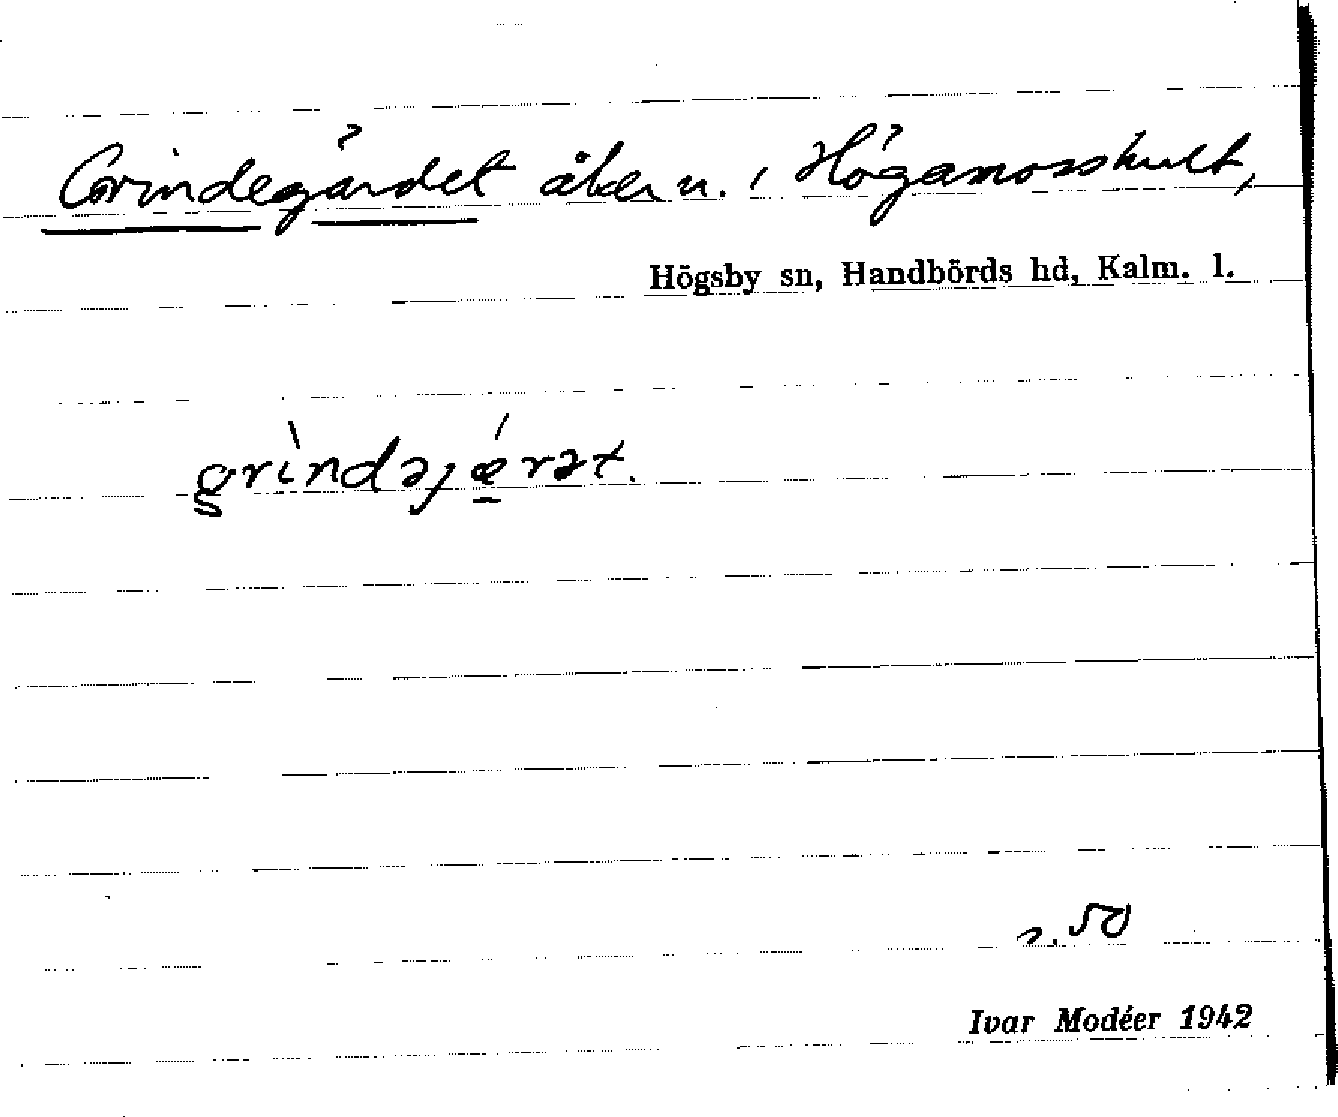 Grindegärdet åker n. i Högamosshult,
Högsby sn, Handbörds hd, Kalm. l.
grìndəjǽrət.
s. 50
Ivar Modéer 1942